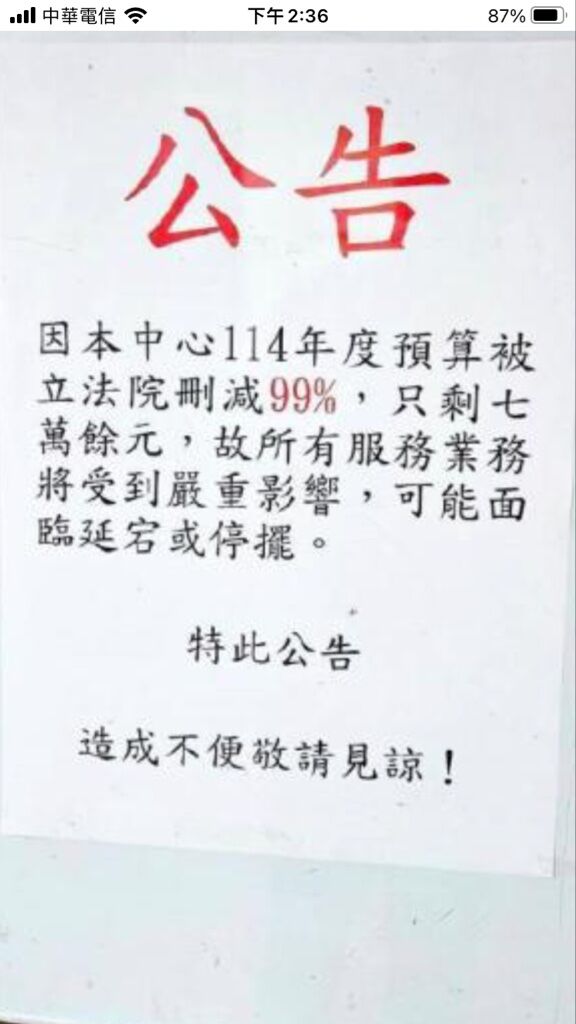 中華電信 下午2:36 87%
公告
因本中心114年度預算被
立法院刪減99%，只剩七
萬餘元，故所有服務業務
將受到嚴重影響，可能面
臨延宕或停擺。
特此公告
造成不便敬請見諒！